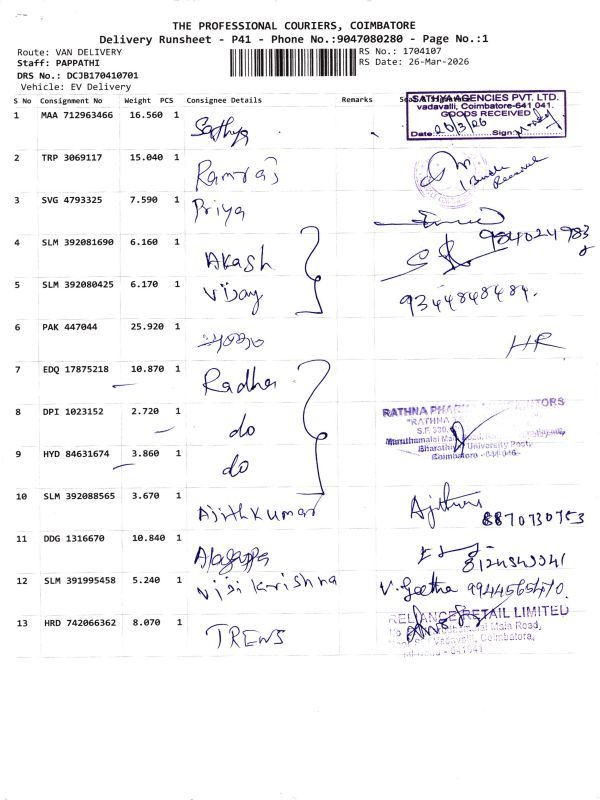 THE PROFESSIONAL COURIERS, COIMBATORE
Delivery Runsheet - P41 - Phone No.:9047080280 - Page No.:1
Route: VAN DELIVERY RS No.: 1704107
Staff: PAPPATHI RS Date: 26-Mar-2026
DRS No.: DCJB170410701
Vehicle: EV Delivery
S No Consignment No Weight PCS Consignee Details Remarks
SATHYA AGENCIES PVT. LTD.
vadavalli, Coimbatore-641 041.
GOODS RECEIVED
Date: 26/3/26 Sign:
1 MAA 712963466 16.560 1 Sathya
2 TRP 3069117 15.040 1 Ramraj
1 Bundle Received
3 SVG 4793325 7.590 1 Priya
4 SLM 392081690 6.160 1 Akash
5 SLM 392080425 6.170 1 Vijay 9344848484.
6 PAK 447044 25.920 1 HR
7 EDQ 17875218 10.870 1 Radha
8 DPI 1023152 2.720 1 do
RATHNA
"RATHNA
S.F. 330,
Maruthamalai Main
Bharathiar University Post,
Coimbatore - 641 046
9 HYD 84631674 3.860 1 do
10 SLM 392088565 3.670 1 Ajith Kumar
8870730753
11 DDG 1316670 10.840 1 Alagappa
12 SLM 391995458 5.240 1 Nisi Krishna V. Geetha
13 HRD 742066362 8.070 1 TRENS
RELIANCE RETAIL LIMITED
Main Road,
Vadavalli, Coimbatore,
641041